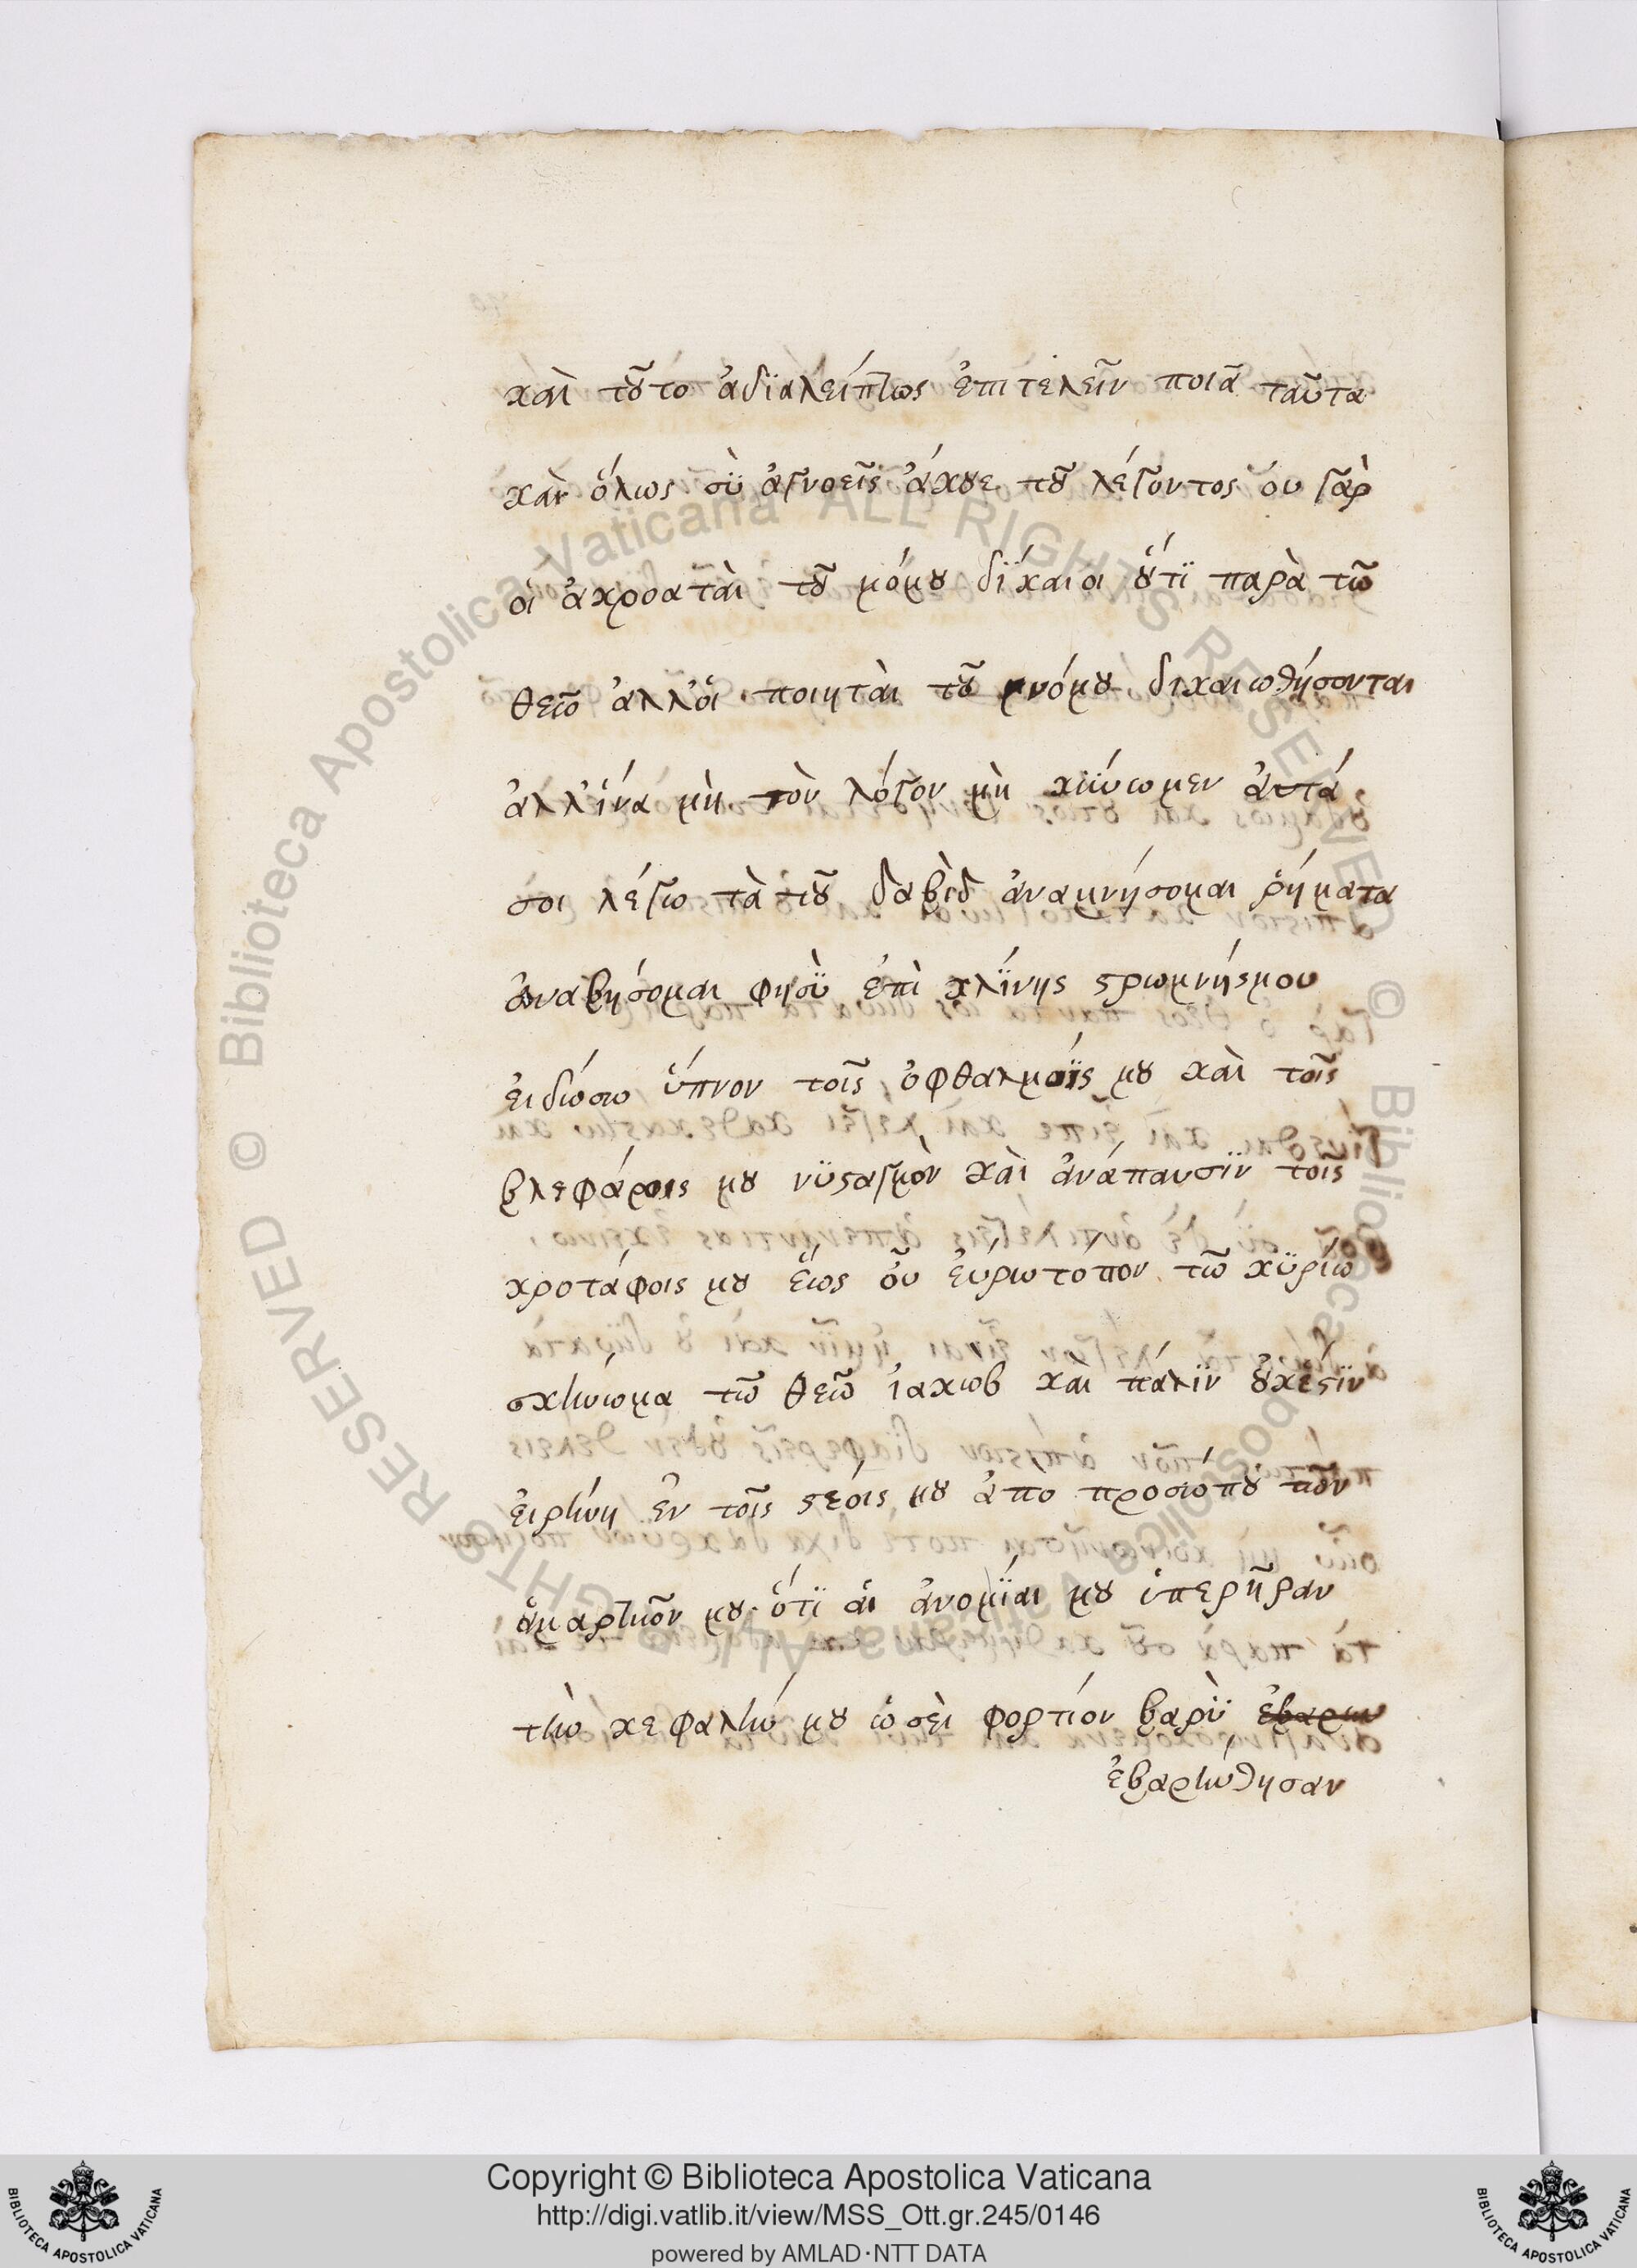 καὶ τοῦτο ἀδϊαλείπτως ἐπιτελεῖν ποιᾶ ταῦτα
κἂν ὅλως σὺ ἀγνοεῖς ἄκουε τοῦ λέγοντος ὁυ γὰρ
οἱ ἀκροαταὶ τοῦ μόμου δίκαιοι οὔτϊ παρὰ τῶ
θεῶ ἀλλ' ὁι ποιηταὶ τοῦ νόμου δικαιωθήσονται
ἀλλ' ἵνα μὴ τὸν λόγον μὴ κινύωμεν ἀυτά
σοι λέγω τὰ τοῦ δαβὶδ ἀναμνήσομαι ῥήματα
ἀναβήσομαι φησὺ ἐπὶ κλίνης στρωμνήσμου
ἐι δώσω ὕπνον τοῖς ὀφθαλμοῖς μου καὶ τοῖς
βλεφάροις μου νϋσταγμὸν καὶ ἀνάπαυσϊν τοῖς
κροτάφοις μου ἕως ὁυ ἐύρω τόπον τῶ κϋρίω
σκήνωμα τῶ θεῶ ἰακωβ καὶ πάλϊν οὐκέστϊν
ἐιρήνη ἐν τοῖς στέοις μου ἀπο προσώπου τῶν
ἁμαρτιῶν μου· ὅτϊ ἁι ἀνομίαι μου ὑπερῆραν
τὴν κεφαλήν μου ὡσὲι φορτίον βαρὺ ἐβαρην
ἐβαρήνθησαν
Copyright © Biblioteca Apostolica Vaticana
http://digi.vatlib.it/view/MSS_Ott.gr.245/0146
powered by AMLAD·NTT DATA